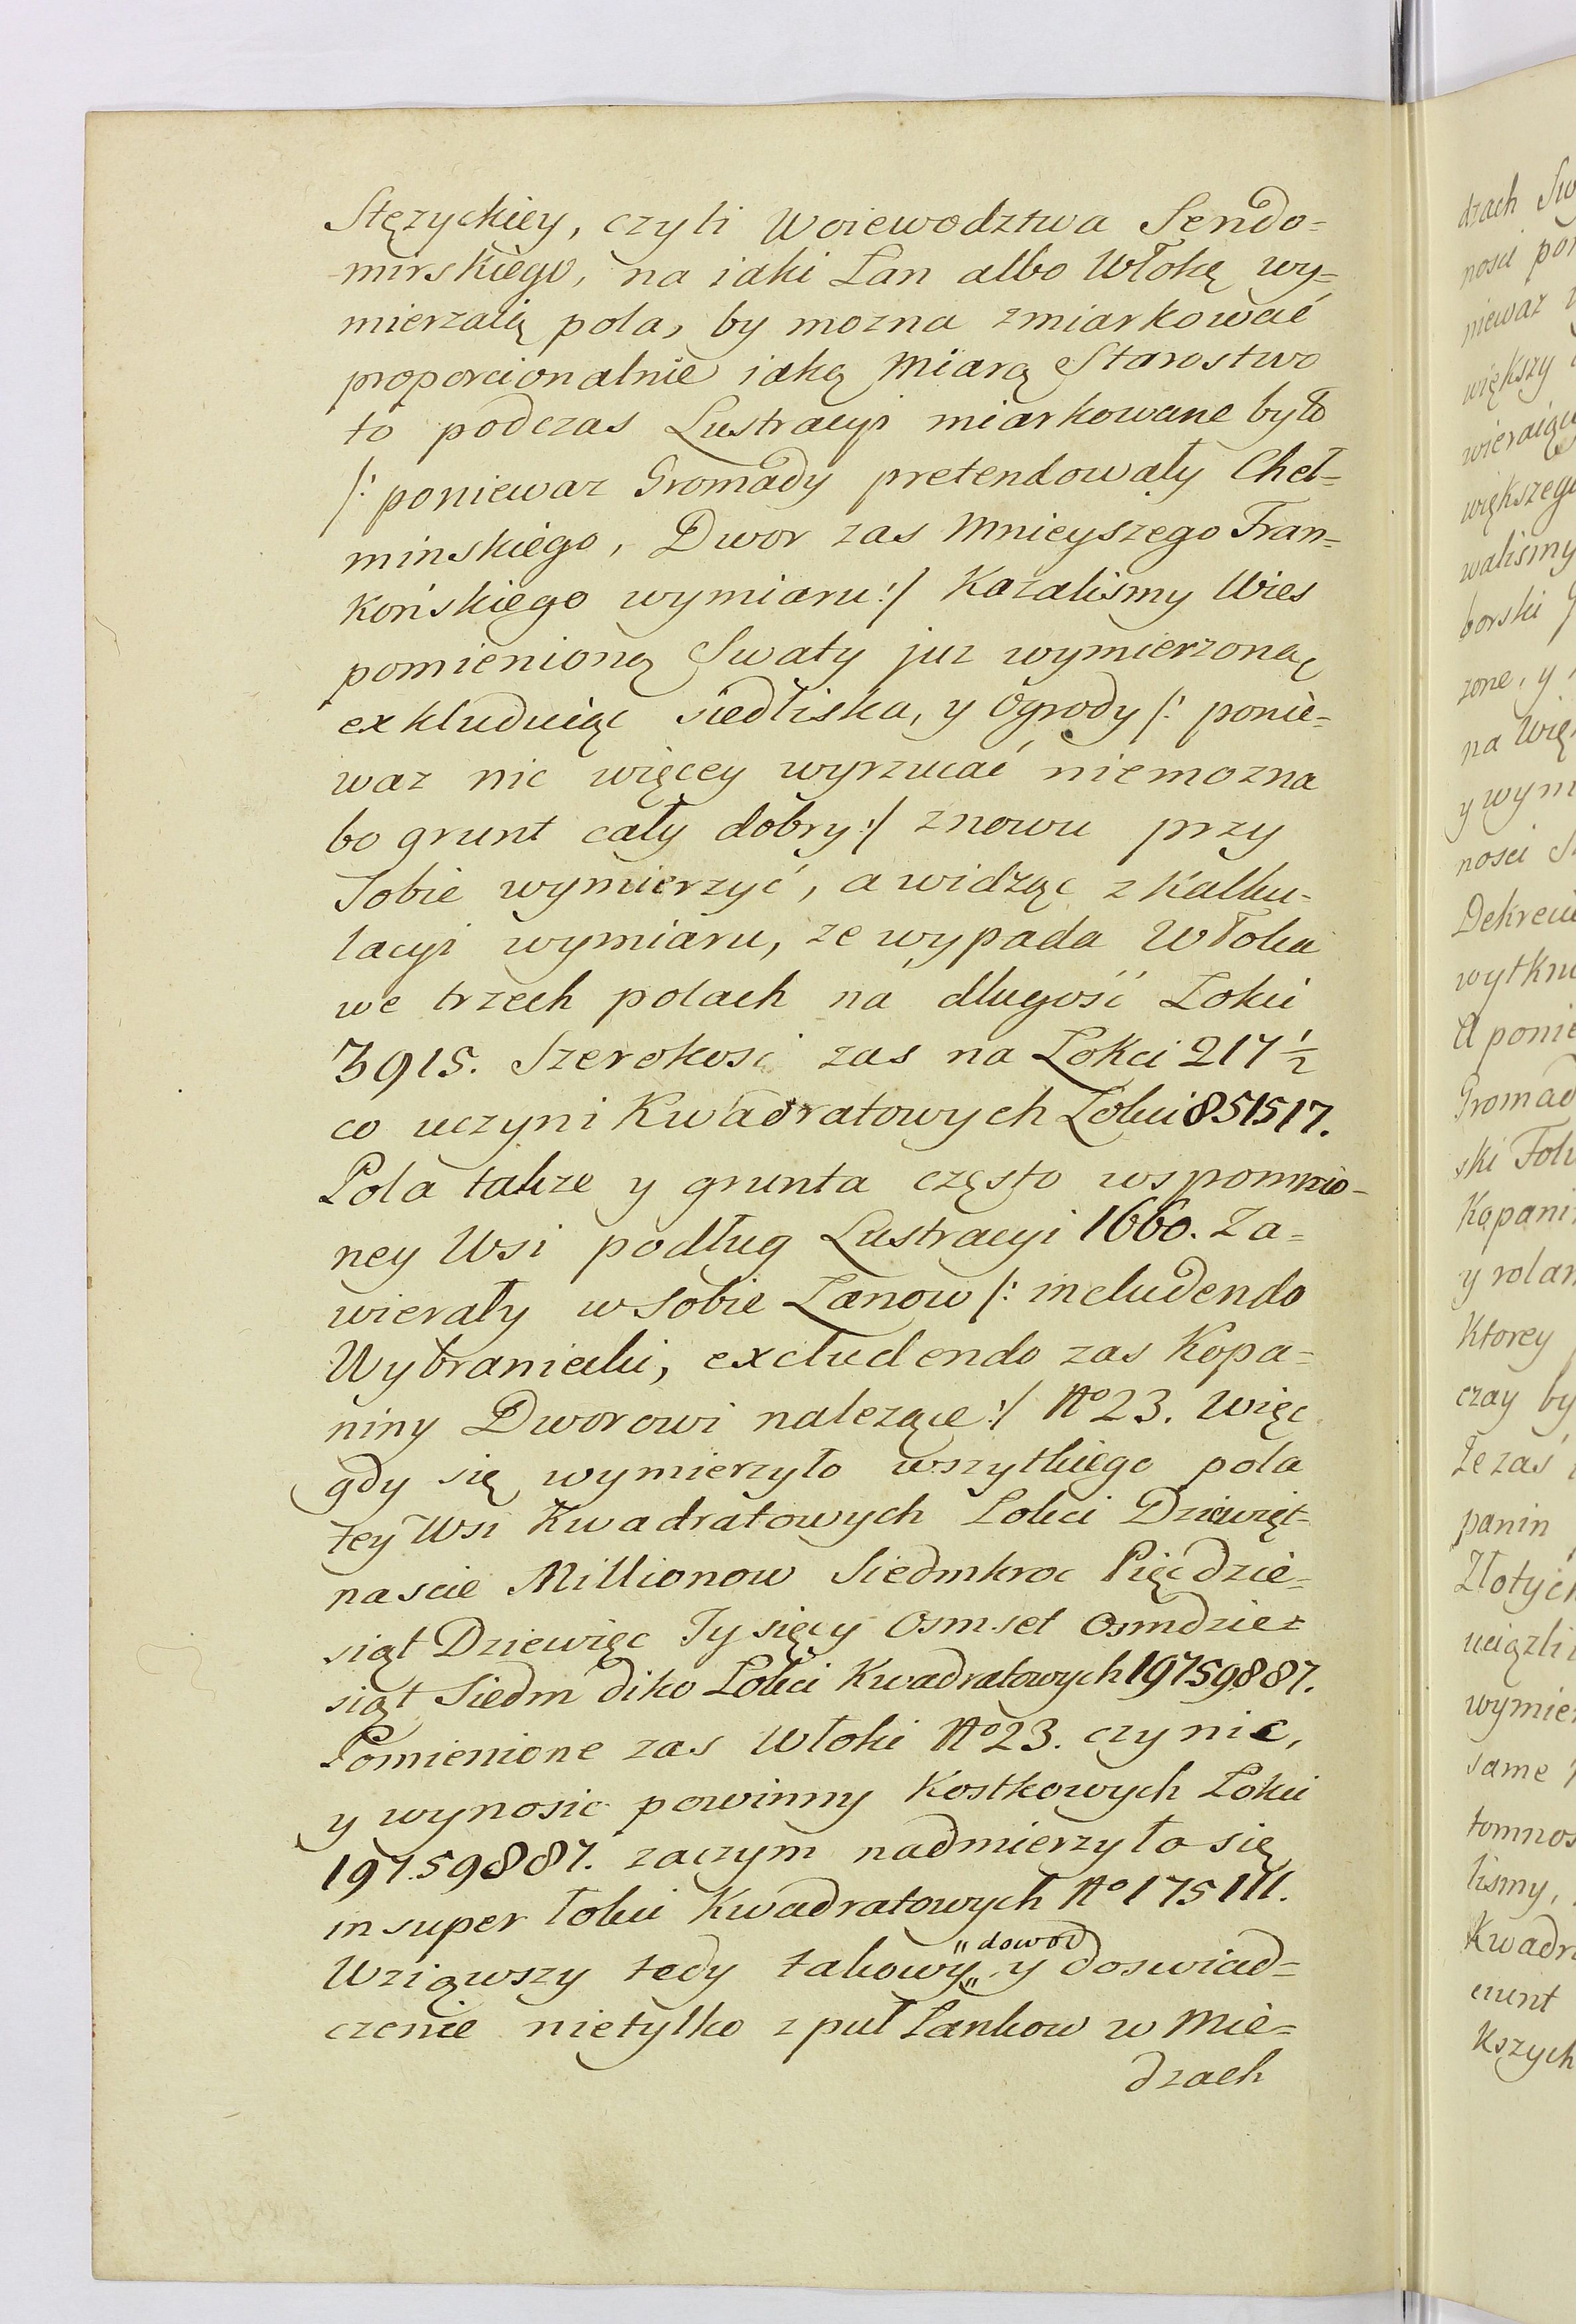 Stęzyckiey, czyli Woiewodztwa Sendo=
mirskiego, na iaki Łan albo Włokę wy=
mierzaią pola, by mozna zmiarkować
proporcionalnie iaką Miarą Starostwo
to podczas Lustracyi miarkowane było
/: poniewaz Gromady pretendowały Cheł=
minskiego, Dwor zas Mnieyszego Fran=
końskiego wymiaru :/ Kazalismy Wies
pomienioną Swaty juz wymierzoną
exkluduiąc siedliska, y Ogrody /: ponie=
waz nic więcey wyrzucać niemozna
bo grunt cały dobry :/ znowu przy
Sobie wymierzyć, a widząc z Kalku=
lacyi wymiaru, ze wypada Włoka
we trzech polach na długość Łokci
3915. Szerokosci zas na Łokci 217 1/2
co uczyni Kwadratowych Łokci 851517.
Pola takze y grunta często wspomnio=
ney Wsi podług Lustracyi 1660. Za=
wierały w sobie Łanow /: includendo
Wybraniecki, excludendo zas Kopa=
niny Dworowi nalezące :/ No 23. Więc
gdy się wymierzyło wszytkiego pola
tey Wsi Kwadratowych Łokci Dziewięt=
nascie Millionow Siedmkroc Pięcdzie=
siąt Dziewięc Tysięcy Osmset Osmdzie=
siąt Siedm diko Łokci Kwadratowych 19759887.
Pomienione zas Włoki No 23. czynic,
y wynosic powinny Kostkowych Łokci
19759887. zaczym nadmierzyło się
insuper łokci Kwadratowych No 175111.
" dowod
Wziąwszy tedy takowy " y doswiad=
czenie nietylko z puł Łankow w Mie=
dzach
drach
nosci
niewaz
większy
większego
walismy
borski
zone, y
na
y
nosci
Dekrecie
A
ski
y
Ktorey
czay by
Ze zaś
panin
Złotych
same
lismy,
kszych